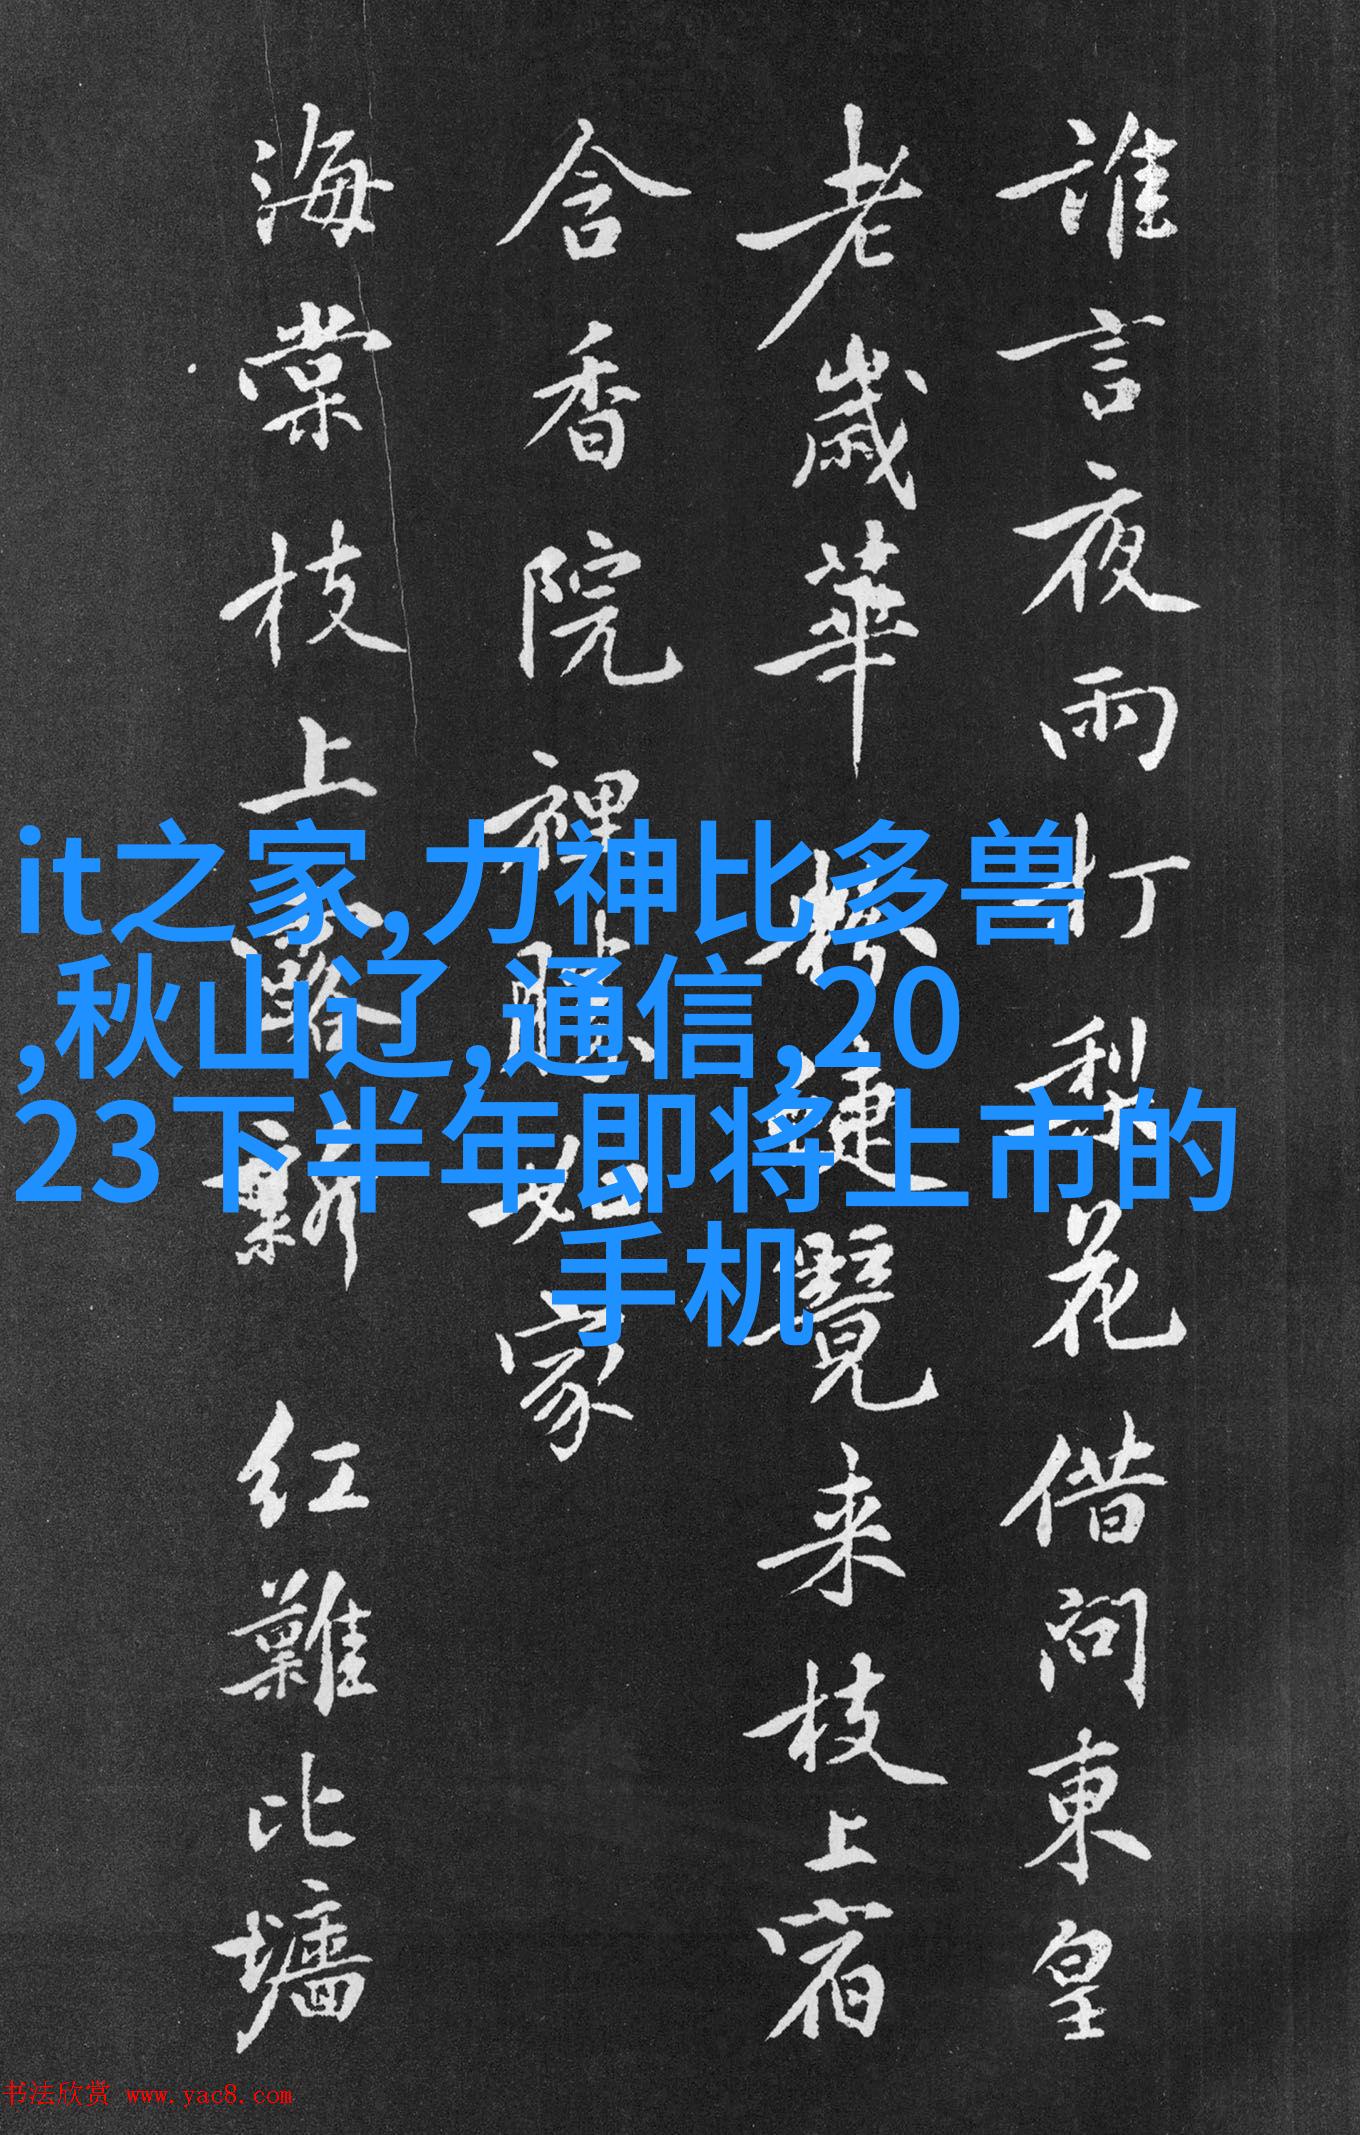 誰言夜雨打梨花借問東皇
老歲華
來枝上宿
含香院裡
家
海棠枝上
新紅難比墻
it之家,力神比多兽
,秋山辽,通信,20
23下半年即将上市的
手机
书法欣赏 www.yac8.com